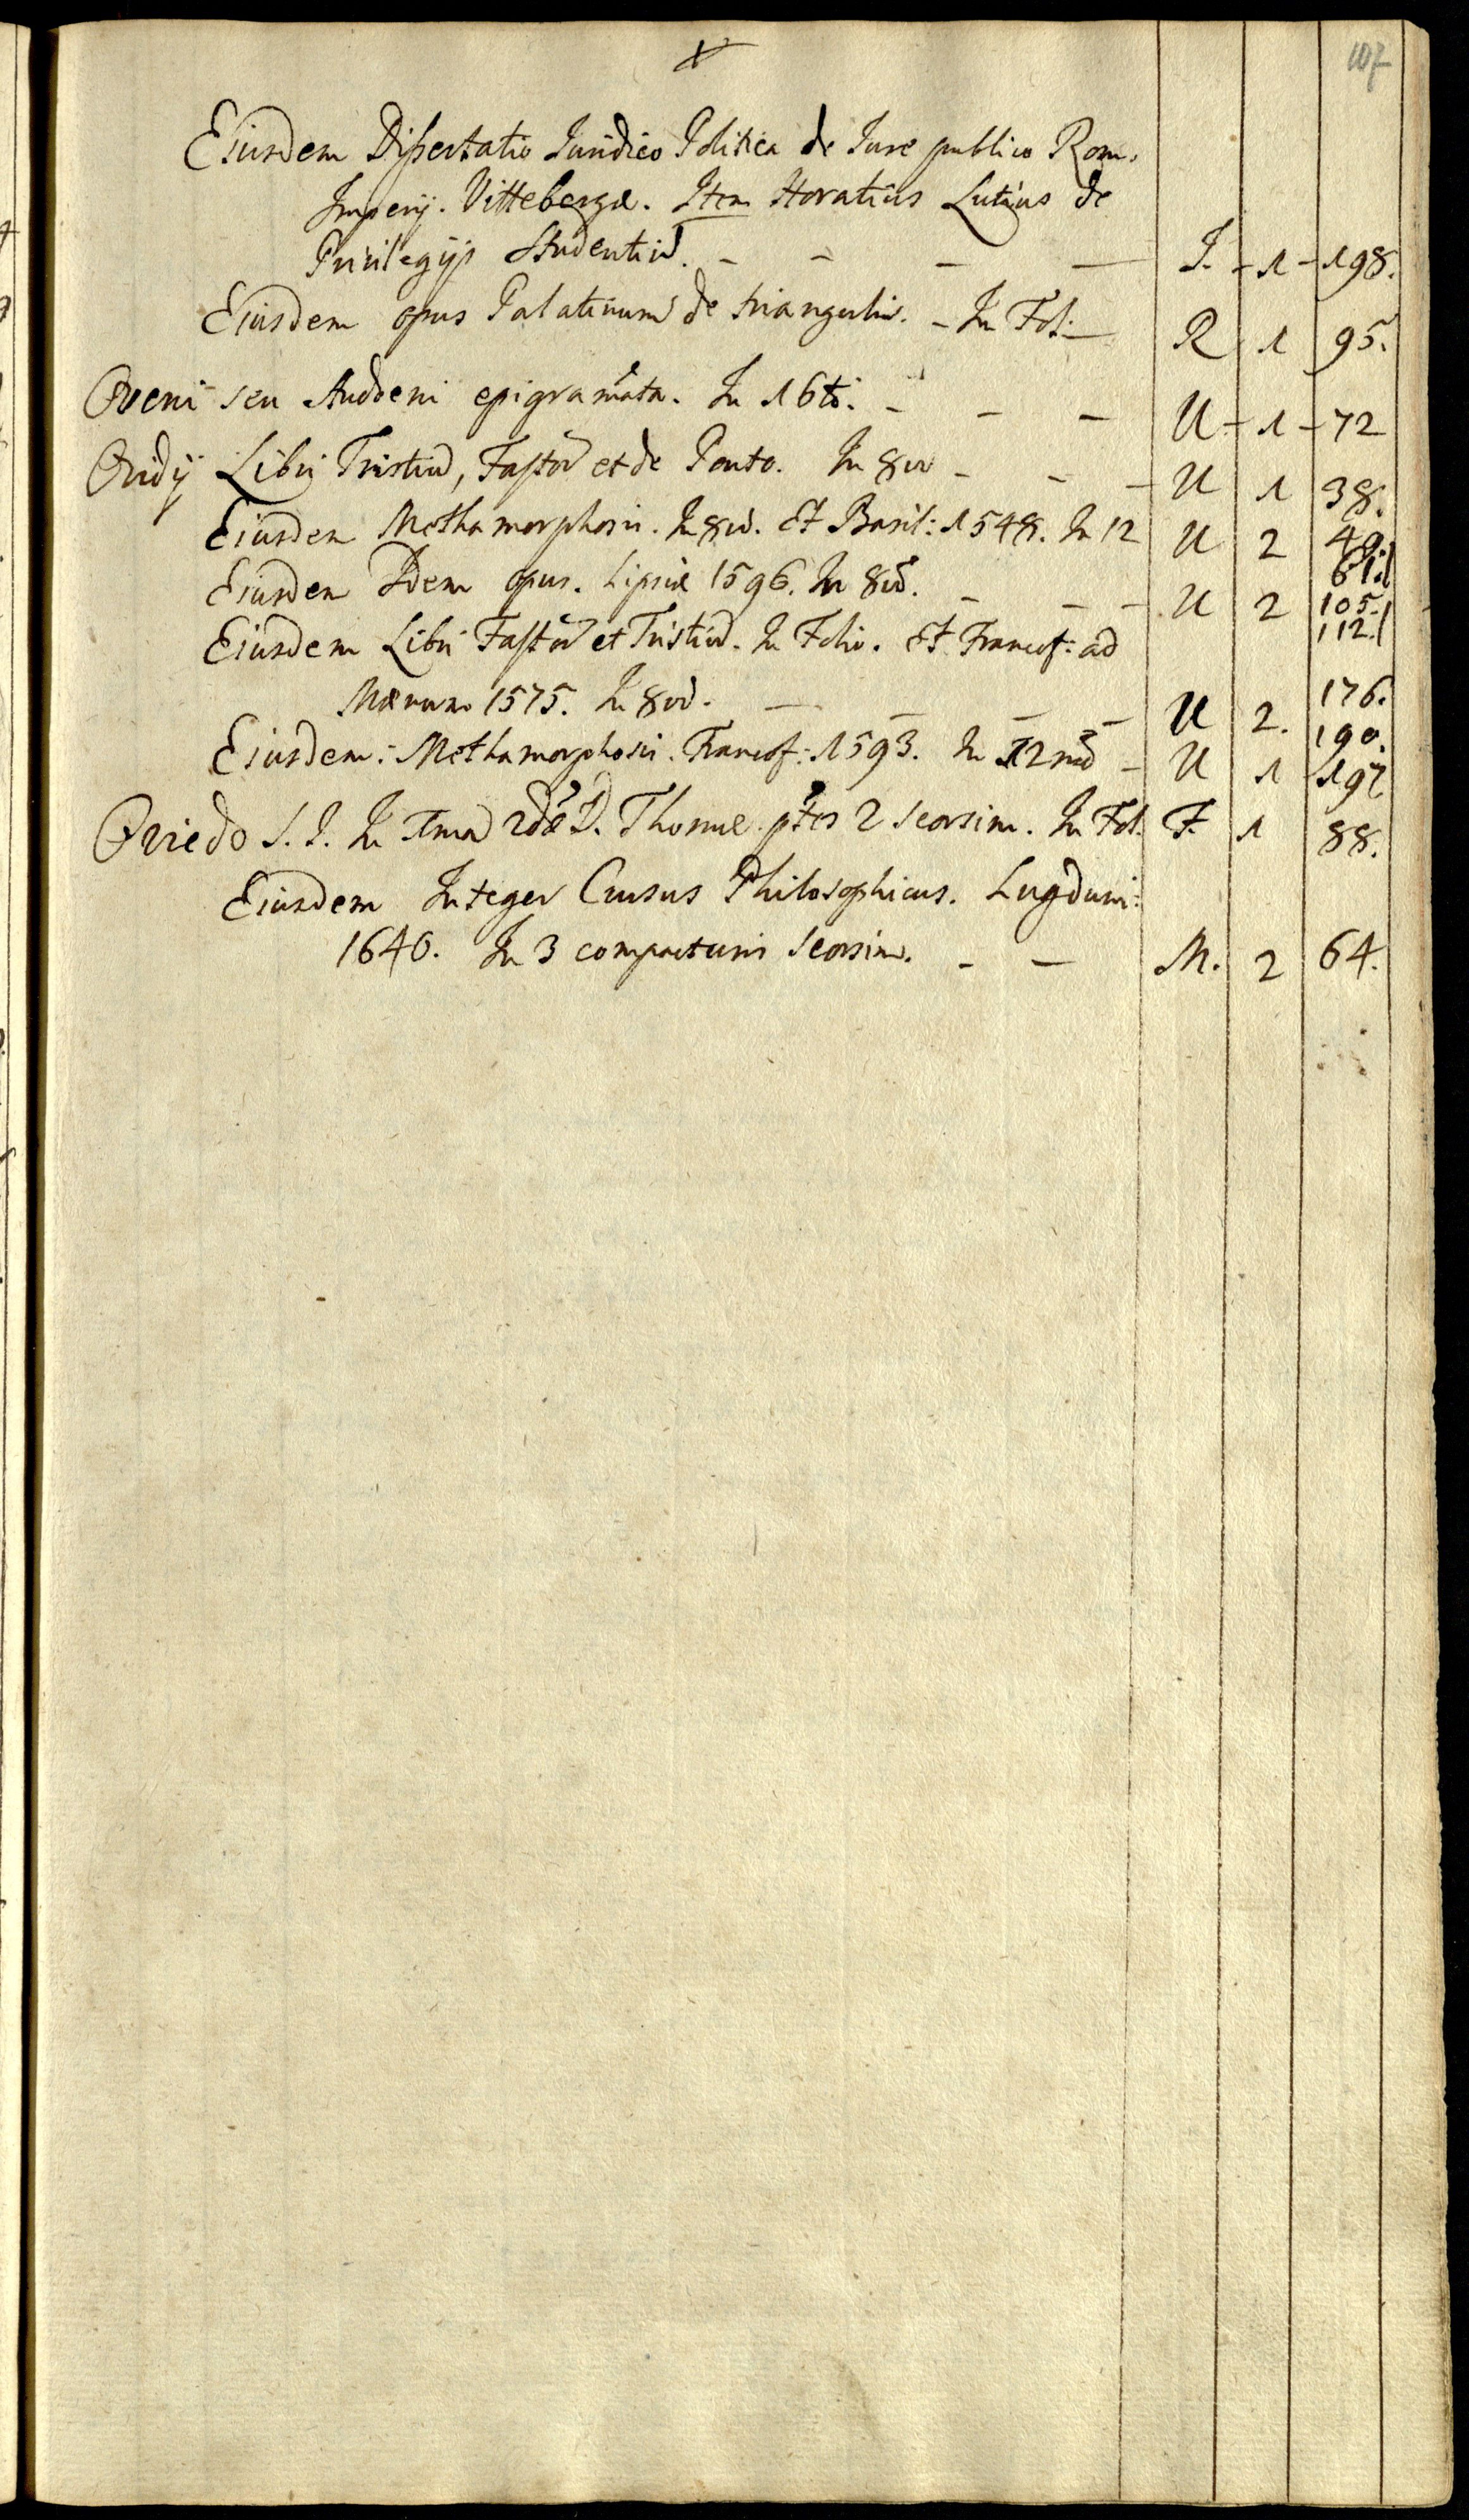 107
Eiusdem Dissertatio Iuridico Politica de Iure publico Rom.
Imperij. Vittebergæ. Item Horatius Lutius de
Priuilegijs Studentiū. - - - - I. - 1 - 198.
Eiusdem opus Palatinum de triangulis. - In Fol. - R 1 95.
Oveni seu Audoeni epigram̃ata. In 16to. - - - U - 1 - 72
Ovidij Libri Tristiū, Fastoꝝ et de Ponto. In 8uo - - - U 1 38.
Eiusdem Methamorphosis. In 8uo. Et Basil: 1548. In 12 U 2 49. 61.
Eiusdem Idem opus. Lipsiæ 1596. In 8uo. - - - U 2 105. 112.
Eiusdem Libri Fastoꝝ et Tristiū. In Folio. Et Francof: ad
Mænum 1575. In 8uo. - - - - U 2. 176. 190.
Eiusdem: Methamorphosis. Francof: 1593. In 12mo - U 1 197
Oviedo S. I. In 1mā 2dæ D. Thomæ ptes 2 seorsim. In Fol. F. 1 88.
Eiusdem Integer Cursus Philosophicus. Lugduni:
1640. In 3 compacturis seorsim. - - M. 2 64.